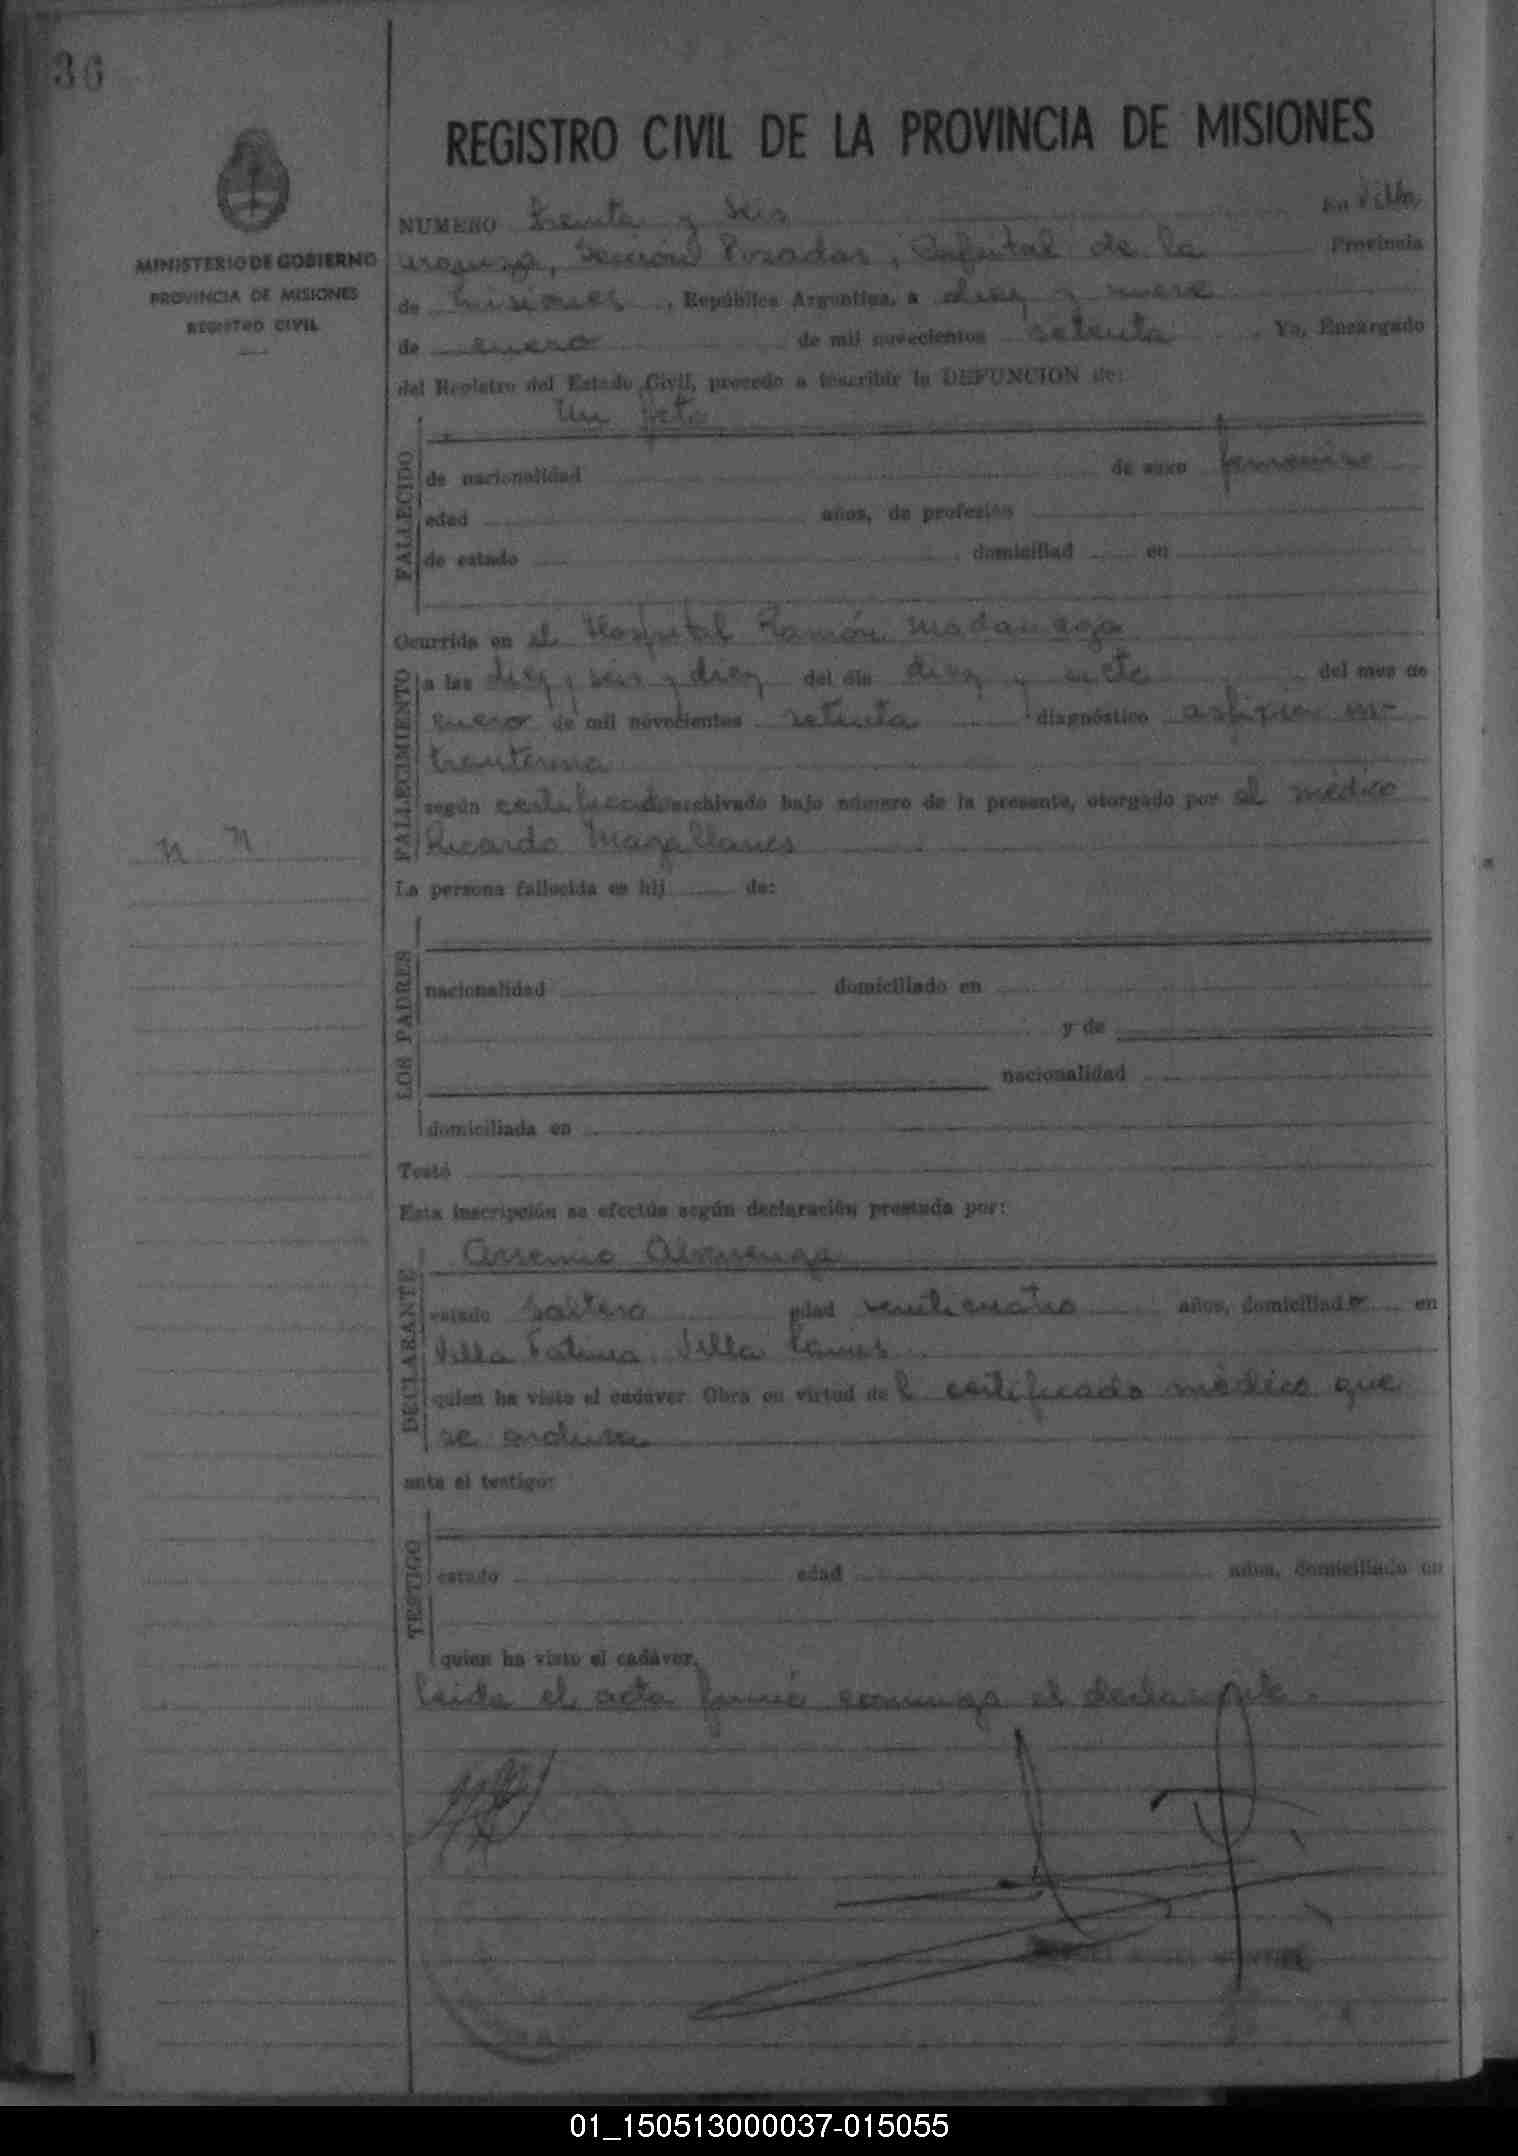 36
REGISTRO CIVIL DE LA PROVINCIA DE MISIONES
MINISTERIO DE GOBIERNO
PROVINCIA DE MISIONES
REGISTRO CIVIL
NUMERO Treinta y seis En Villa
urquiza, Sección Posadas, Capital de la Provincia
de Misiones, República Argentina, a diez y nueve
de enero de mil novecientos setenta. Yo, Encargado
del Registro del Estado Civil, procedo a inscribir la DEFUNCION de:
Un feto
FALLECIDO
de nacionalidad de sexo femenino
edad años, de profesión
de estado domiciliad en
Ocurrida en el Hospital Ramón Madariaga
FALLECIMIENTO
a las diez y seis y diez del día diez y siete del mes de
enero de mil novecientos setenta diagnóstico asfixia in-
trauterina
según certificado archivado bajo número de la presente, otorgado por el médico
Ricardo Magallanes
n n
La persona fallecida es hij de:
LOS PADRES
nacionalidad domiciliado en
y de
nacionalidad
domiciliada en
Testó
Esta inscripción se efectúa según declaración prestada por:
DECLARANTE
Arsenio Almirón
estado soltero edad veinticuatro años, domiciliado en
Villa Fatima. Villa Lanus
quien ha visto el cadáver. Obra en virtud del certificado médico que
se archiva
ante el testigo:
TESTIGO
estado edad años, domiciliado en
quien ha visto el cadáver.
Leida el acta firmó conmigo el declarante.
01_150513000037-015055